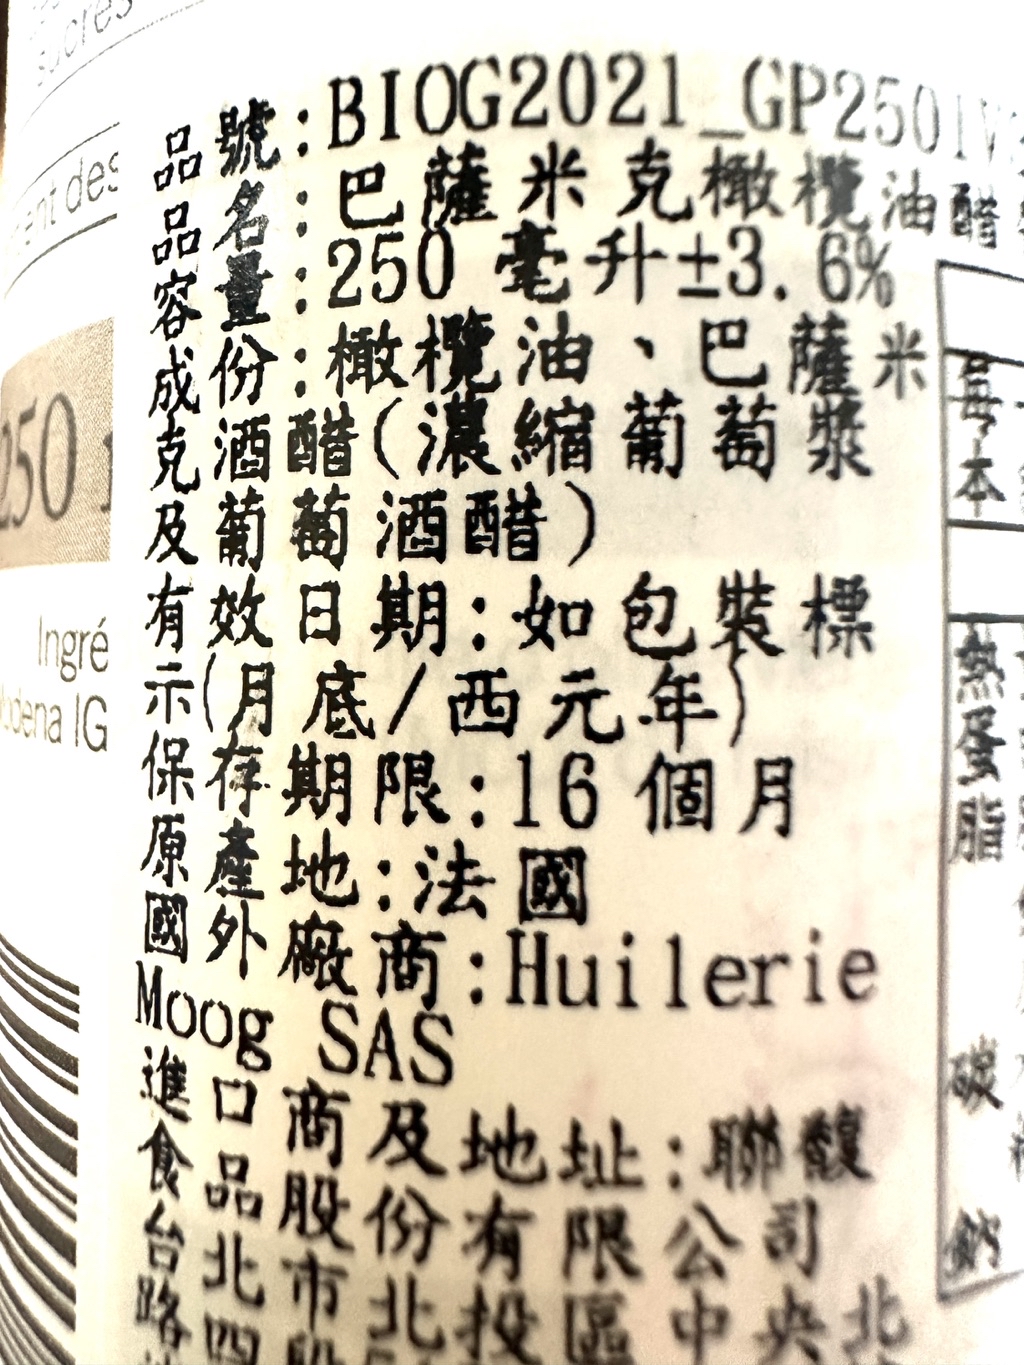 sucres
品號:BIOG2021_GP250IV
品名:巴薩米克橄欖油醋
容量:250 毫升±3.6%
成份:橄欖油、巴薩米
克酒醋(濃縮葡萄漿
及葡萄酒醋)
有效日期:如包裝標
示(月底/西元年)
保存期限:16個月
原產地:法國
國外廠商:Huilerie
Moog SAS
進口商及地址:聯馥
食品股份有限公司
台北市北投區中央北
路四段
250
Ingré
IG
每
本
熱
蛋
脂
碳
鈉